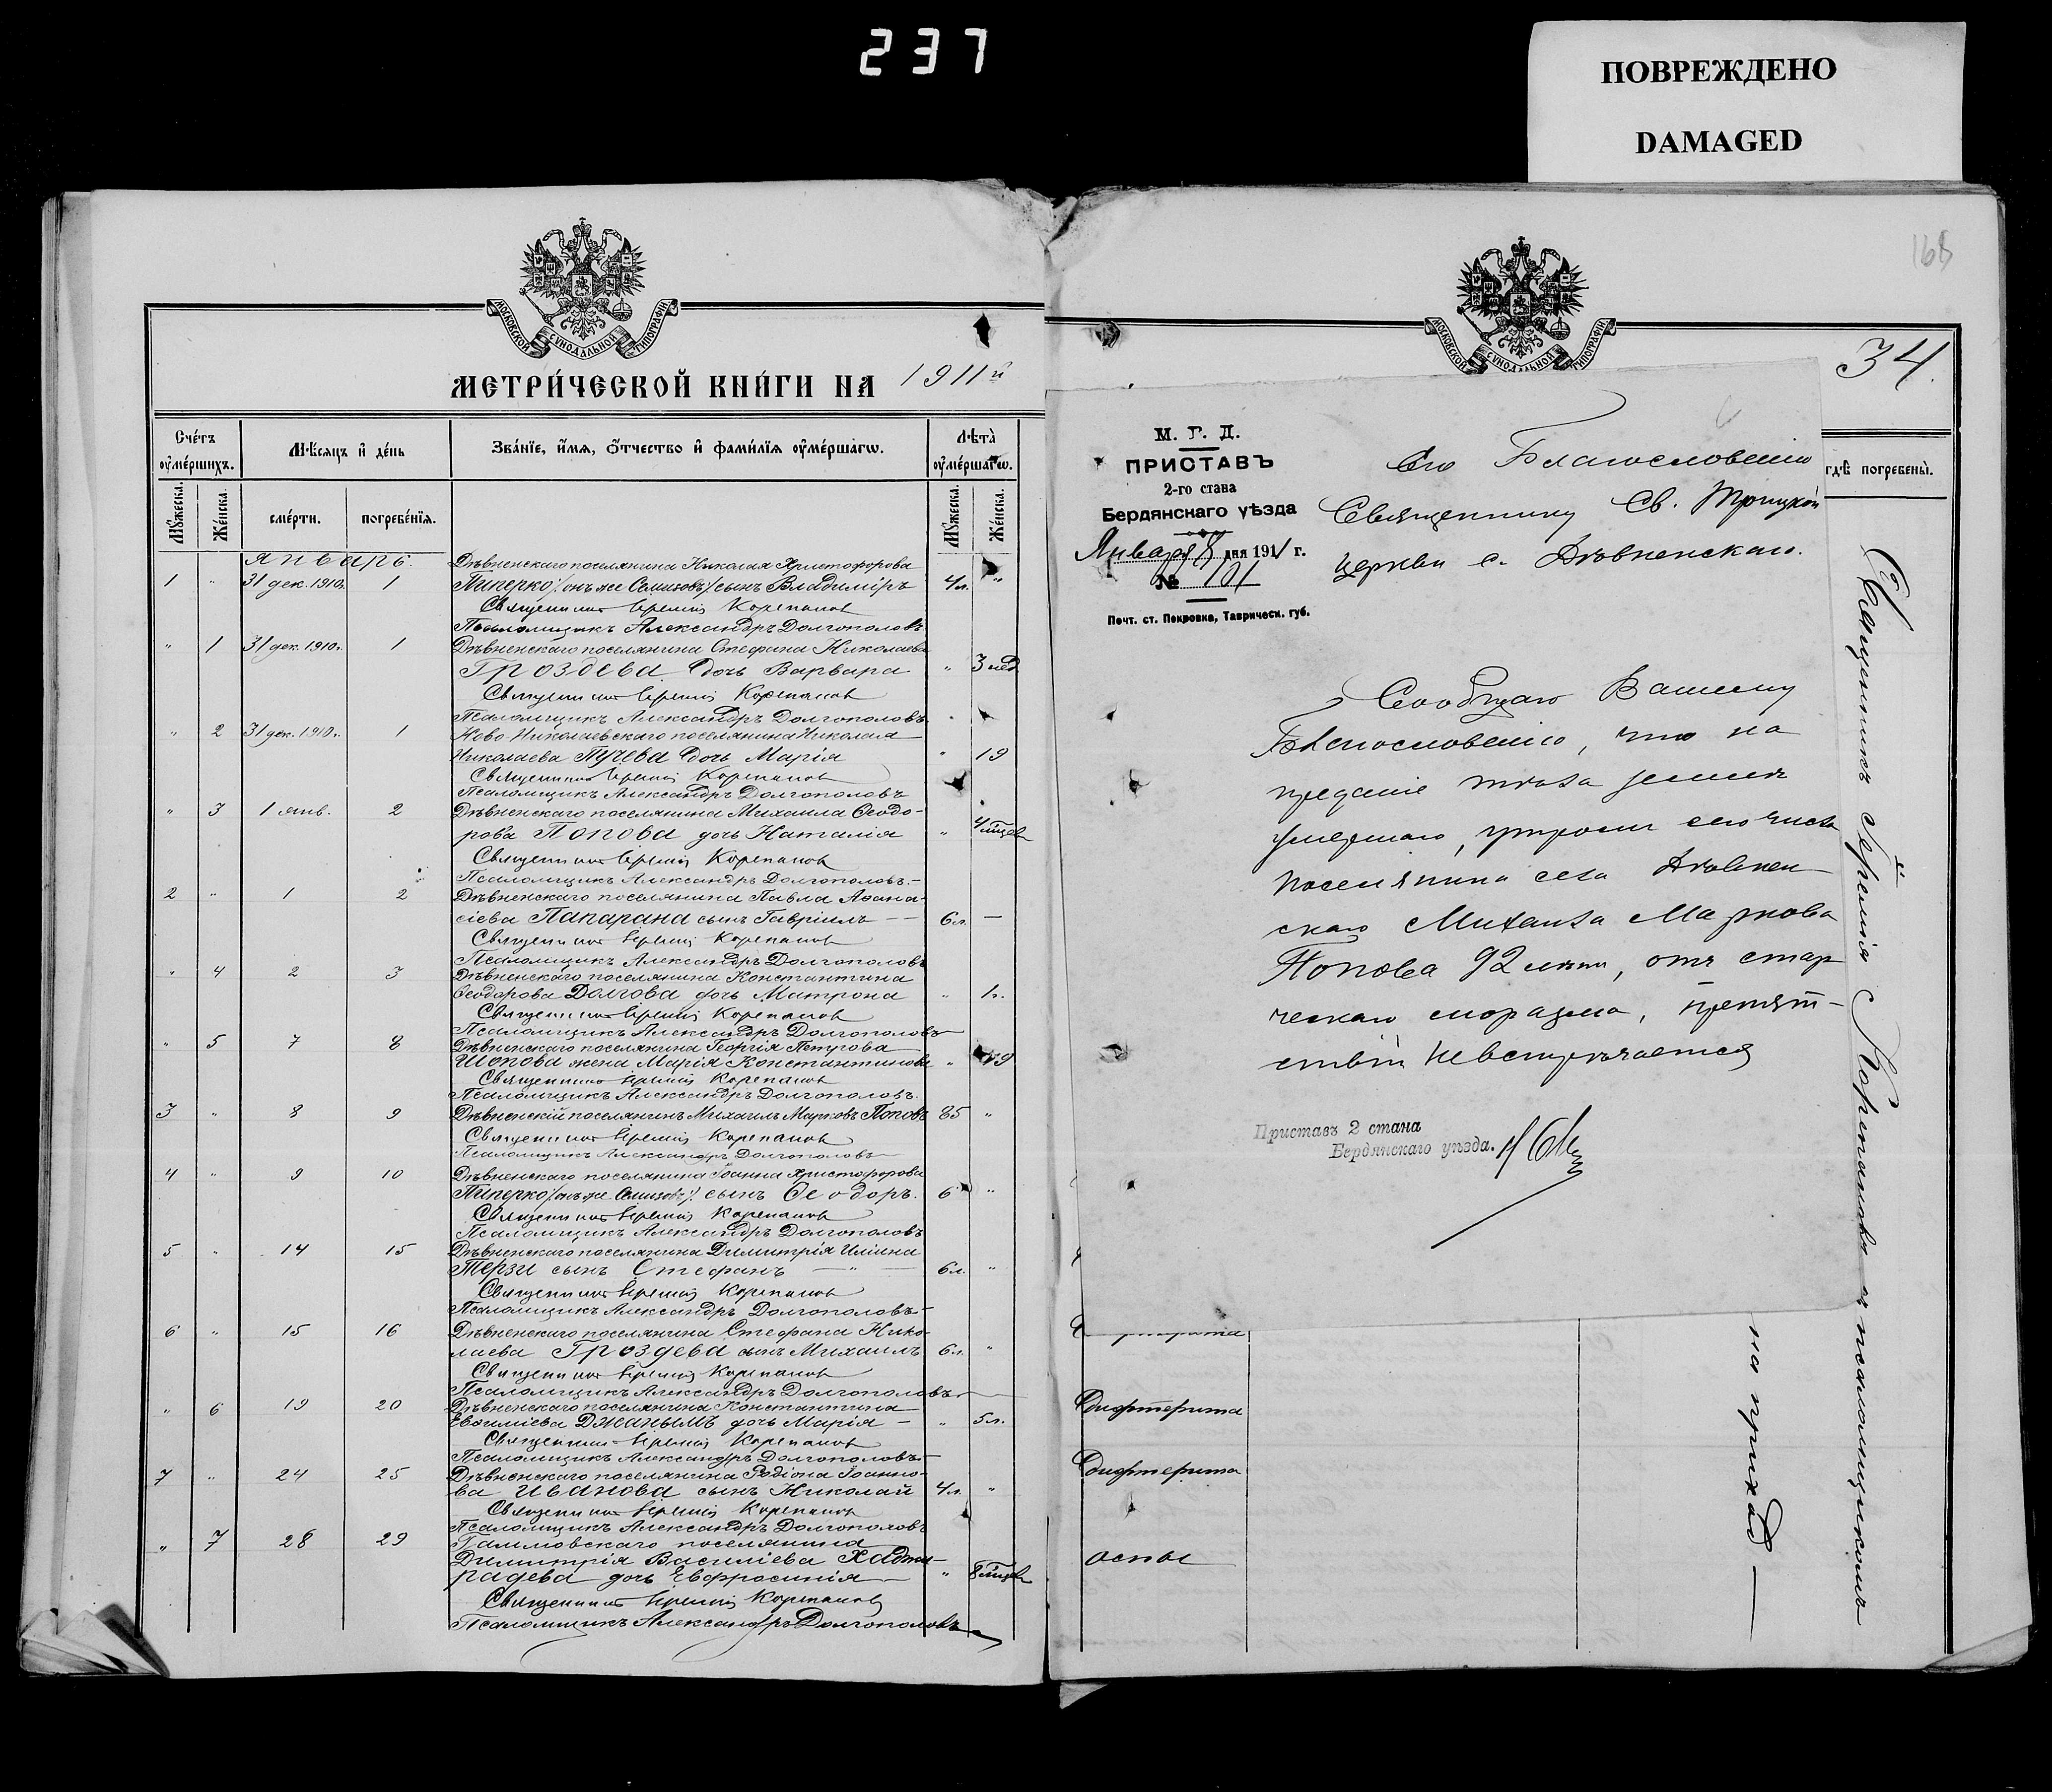 237
ПОВРЕЖДЕНО
DAMAGED
МОСКОВСКОЙ СУНОДАЛЬНОЙ ТИПОГРАФІИ
МЕТРИ́ЧЕСКОЙ КНИ́ГИ НА 1911й
Сче́тъ оумéршихъ.
Мѣ́сяцъ и҆ де́нь
Зва́нїе, и҆́мя, ѻ҆́тчество и҆ фами́лїя оумéршагѡ.
Лѣ́та оумéршагѡ.
Мꙋжеска.
Же́нска.
сме́рти.
погребе́нїя.
Мꙋжеска.
Же́нска.
Январь.
Дѣвненскаго поселянина Николая Христофорова
1 " 31 дек. 1910г. 1 Пиперко /онъ же Семизовъ/ сынъ Владиміръ 4 л. "
Священникъ Іеремія Корепановъ
Псаломщикъ Александръ Долгополовъ
" 1 31 дек. 1910г. 1 Дѣвненскаго поселянина Стефана Николаева
Гроздева дочь Варвара " 3 нед
Священникъ Іеремія Корепановъ
Псаломщикъ Александръ Долгополовъ
" 2 31 дек. 1910г. 1 Ново-Николаевскаго поселянина Николая
Николаева Пучева дочь Марія " 19
Священникъ Іеремія Корепановъ
Псаломщикъ Александръ Долгополовъ
" 3 1 янв. 2 Дѣвненскаго поселянина Михаила Ѳеодо-
рова Попова дочь Наталія " 4 мцев
Священникъ Іеремія Корепановъ
Псаломщикъ Александръ Долгополовъ.
2 " 1 2 Дѣвненскаго поселянина Павла Аѳана-
сіева Папарана сынъ Гавріилъ 6 л. —
Священникъ Іеремія Корепановъ
Псаломщикъ Александръ Долгополовъ
" 4 2 3 Дѣвненскаго поселянина Константина
Ѳеодорова Долгова дочь Матрона " 1 г.
Священникъ Іеремія Корепановъ
Псаломщикъ Александръ Долгополовъ
" 5 7 8 Дѣвненскаго поселянина Георгія Петрова
Шопова жена Марія Константинова "
Священникъ Іеремія Корепановъ
Псаломщикъ Александръ Долгополовъ.
3 " 8 9 Дѣвненскій поселянинъ Михаилъ Марковъ Поповъ 85 "
Священникъ Іеремія Корепановъ
Псаломщикъ Александръ Долгополовъ
4 " 9 10 Дѣвненскаго поселянина Іоанна Христофорова
Пиперко /онъ же Семизовъ/ сынъ Ѳеодоръ. 6 "
Священникъ Іеремія Корепановъ
Псаломщикъ Александръ Долгополовъ
5 " 14 15 Дѣвненскаго поселянина Димитрія Иліина
Терзи сынъ Стефанъ — " — 6 л. "
Священникъ Іеремія Корепановъ
Псаломщикъ Александръ Долгополовъ
6 " 15 16 Дѣвненскаго поселянина Стефана Нико-
лаева Гроздева сынъ Михаилъ 6 л. "
Священникъ Іеремія Корепановъ
Псаломщикъ Александръ Долгополовъ
" 6 19 20 Дѣвненскаго поселянина Константина
Евѳиміева Джанымъ дочь Марія — " 5 л.
Священникъ Іеремія Корепановъ
Псаломщикъ Александръ Долгополовъ
7 " 24 25 Дѣвненскаго поселянина Родіона Іоанно-
ва Иванова сынъ Николай 4 л. "
Священникъ Іеремія Корепановъ
Псаломщикъ Александръ Долгополовъ
" 7 28 29 поселянина
Димитрія Василіева Хаджи-
радева дочь Евфросинія " 8 мцев
Священникъ Іеремія Корепановъ
Псаломщикъ Александръ Долгополовъ
МОСКОВСКОЙ СУНОДАЛЬНОЙ ТИПОГРАФІИ
34.
гдѣ̀ погребены̀.
М. В. Д.
ПРИСТАВЪ
2-го стана
Бердянскаго уѣзда
Января 8 дня 1911 г.
№ 101
Почт. ст. Покровка, Таврическ. губ.
Его Благословенію
Священнику Св. Троицкой
церкви с. Дѣвненскаго.
Сообщаю Вашему
Благословенію, что на
преданіе тѣла землѣ
умершаго, утромъ сего числа
поселянина села Дѣвнен
скаго Михаила Маркова
Попова 92 лѣтъ, отъ стар
ческаго моразма, препят-
ствій невстрѣчается
Приставъ 2 стана
Бердянскаго уѣзда.
Дифтерита
Дифтерита
оспы
Священникъ Іеремія Корепановъ съ псаломщикомъ
на приход